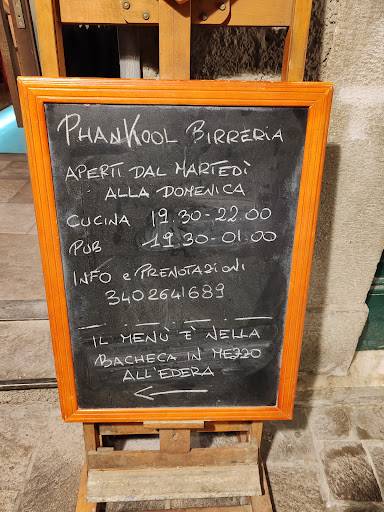 PHANKOOL BIRRERIA
APERTI DAL MARTEDÌ
ALLA DOMENICA
CUCINA 19.30-22.00
PUB 19.30-01.00
INFO e PRENOTAZIONI
3402641689
IL MENÙ È NELLA
BACHECA IN MEZZO
ALL'EDERA